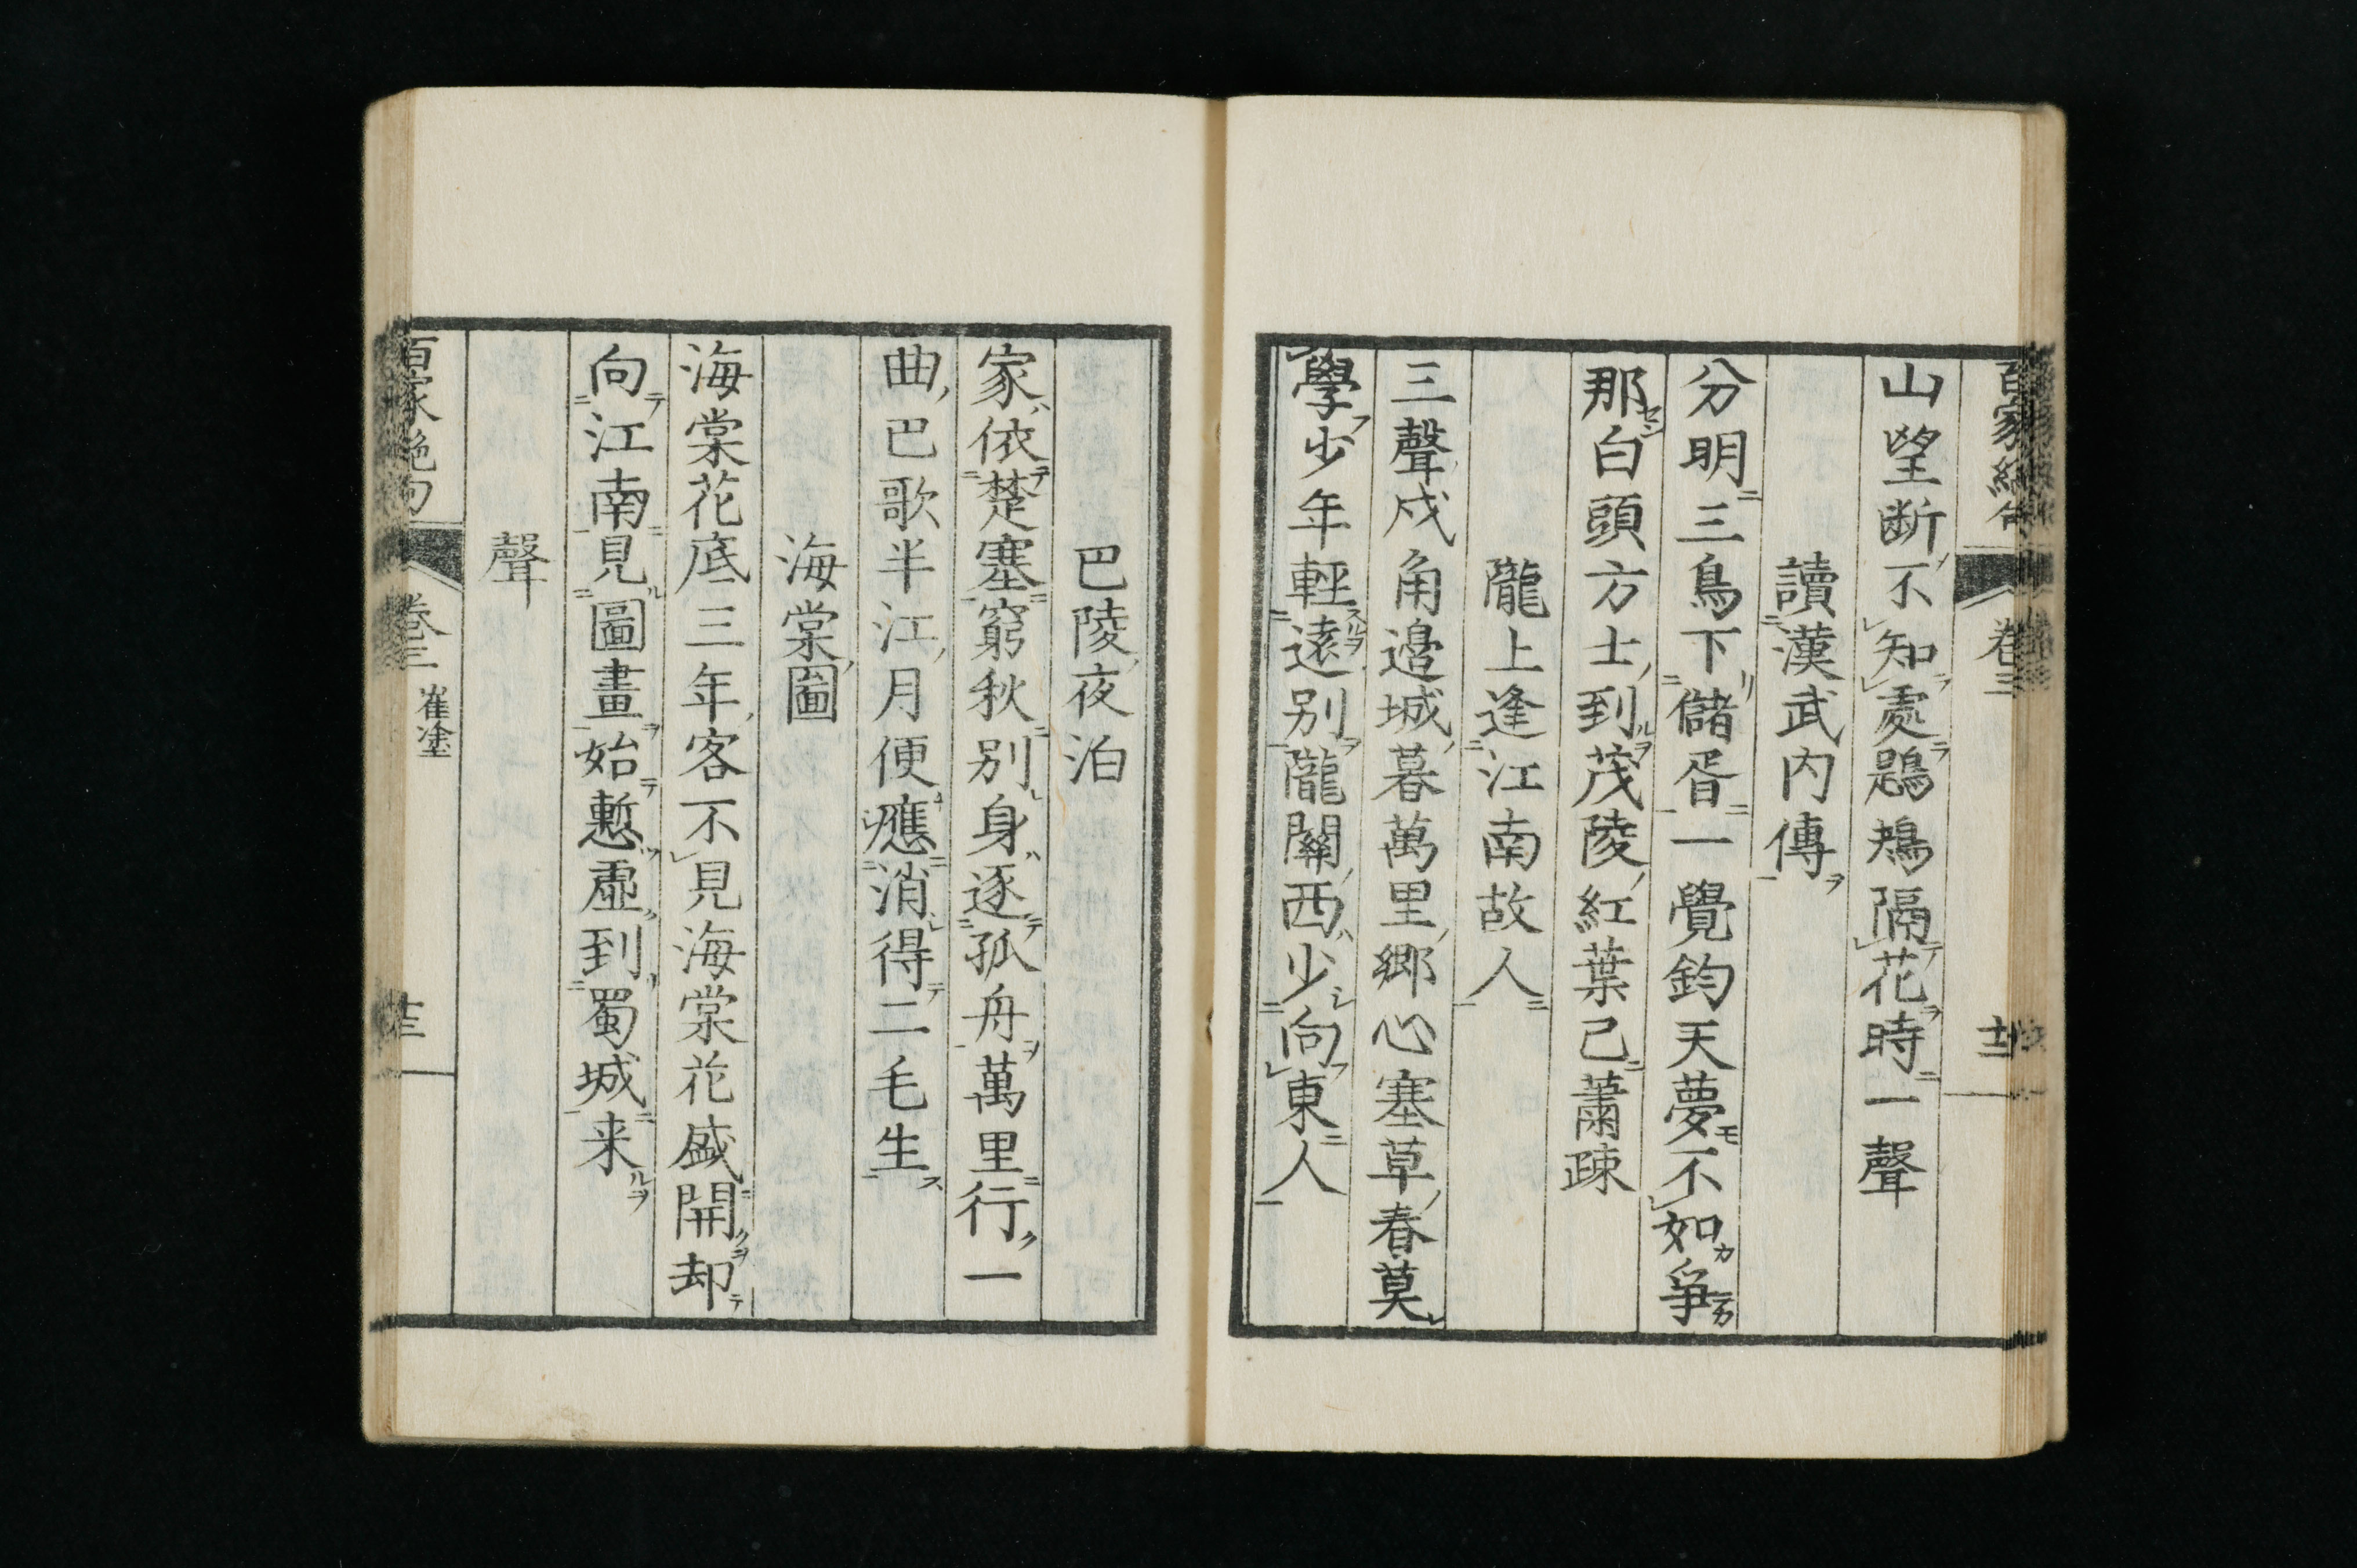 百家絶句
卷三
山望断不知處鶗鴂隔花時一聲
讀漢武内傳
分明三鳥下儲胥一覺鈞天夢不如爭
那白頭方士到茂陵紅葉已蕭疎
隴上逢江南故人
三聲戍角邊城暮萬里鄉心塞草春莫
學少年輕遠別隴關西少向東人
巴陵夜泊
家依楚塞窮秋別身逐孤舟萬里行一
曲巴歌半江月便應消得二毛生
海棠圖
海棠花底三年客不見海棠花盛開却
向江南見圖畫始慙虛到蜀城来
聲
百家絶句
卷三
崔塗